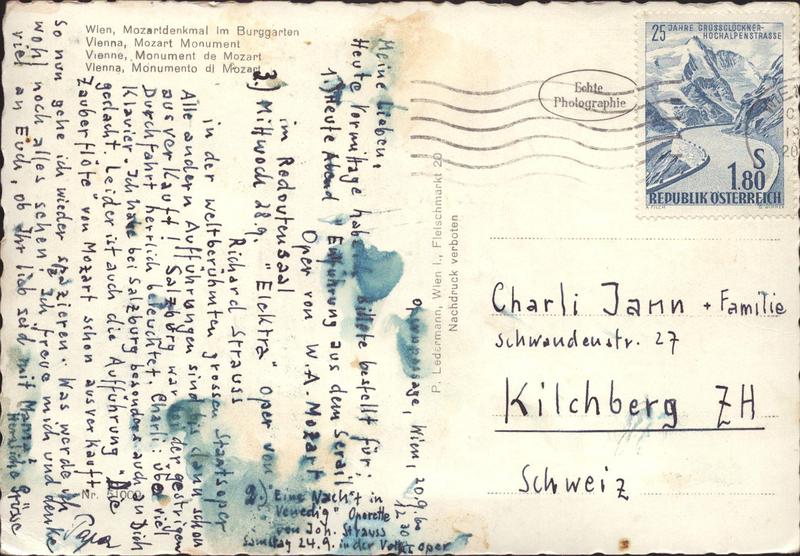 Wien, Mozartdenkmal im Burggarten
Vienna, Mozart Monument
Vienne, Monument de Mozart
Vienna, Monumento di Mozart
Wien, 20.9.60
12.30
Meine Lieben,
Heute Vormittage habe Billete bestellt für:
1.) Heute Abend Entführung aus dem Serail
Oper von W. A. Mozart
im Redoutensaal
2.) "Eine Nacht in
Venedig" Operette
von Joh. Strauss
Samstag 24.9. in der Volksoper
3.) Mittwoch 28.9. "Elektra" Oper von
Richard Strauss
in der weltberühmten grossen Staatsoper
Alle andern Aufführungen sind bis dann schon
ausverkauft! Salzburg war der gestrigen
Durchfahrt herrlich beleuchtet. Charli: übe viel
Klavier. Ich habe bei Salzburg besonders auch an Dich
gedacht. Leider ist auch die Aufführung "Die
Zauberflöte" von Mozart schon ausverkauft.
So nun gehe ich wieder spazieren. Was werde ich
wohl noch alles sehen! Ich freue mich und denke
viel an Euch, ob Ihr lieb seid mit Mama!
Herzliche Grüsse
Papa
Nr. 51000
P. Ledermann, Wien I., Fleischmarkt 20
Nachdruck verboten
Echte
Photographie
25 JAHRE GROSSGLOCKNER-
HOCHALPENSTRASSE
S
1.80
REPUBLIK ÖSTERREICH
Charli Jann + Familie
Schwandenstr. 27
Kilchberg ZH
Schweiz